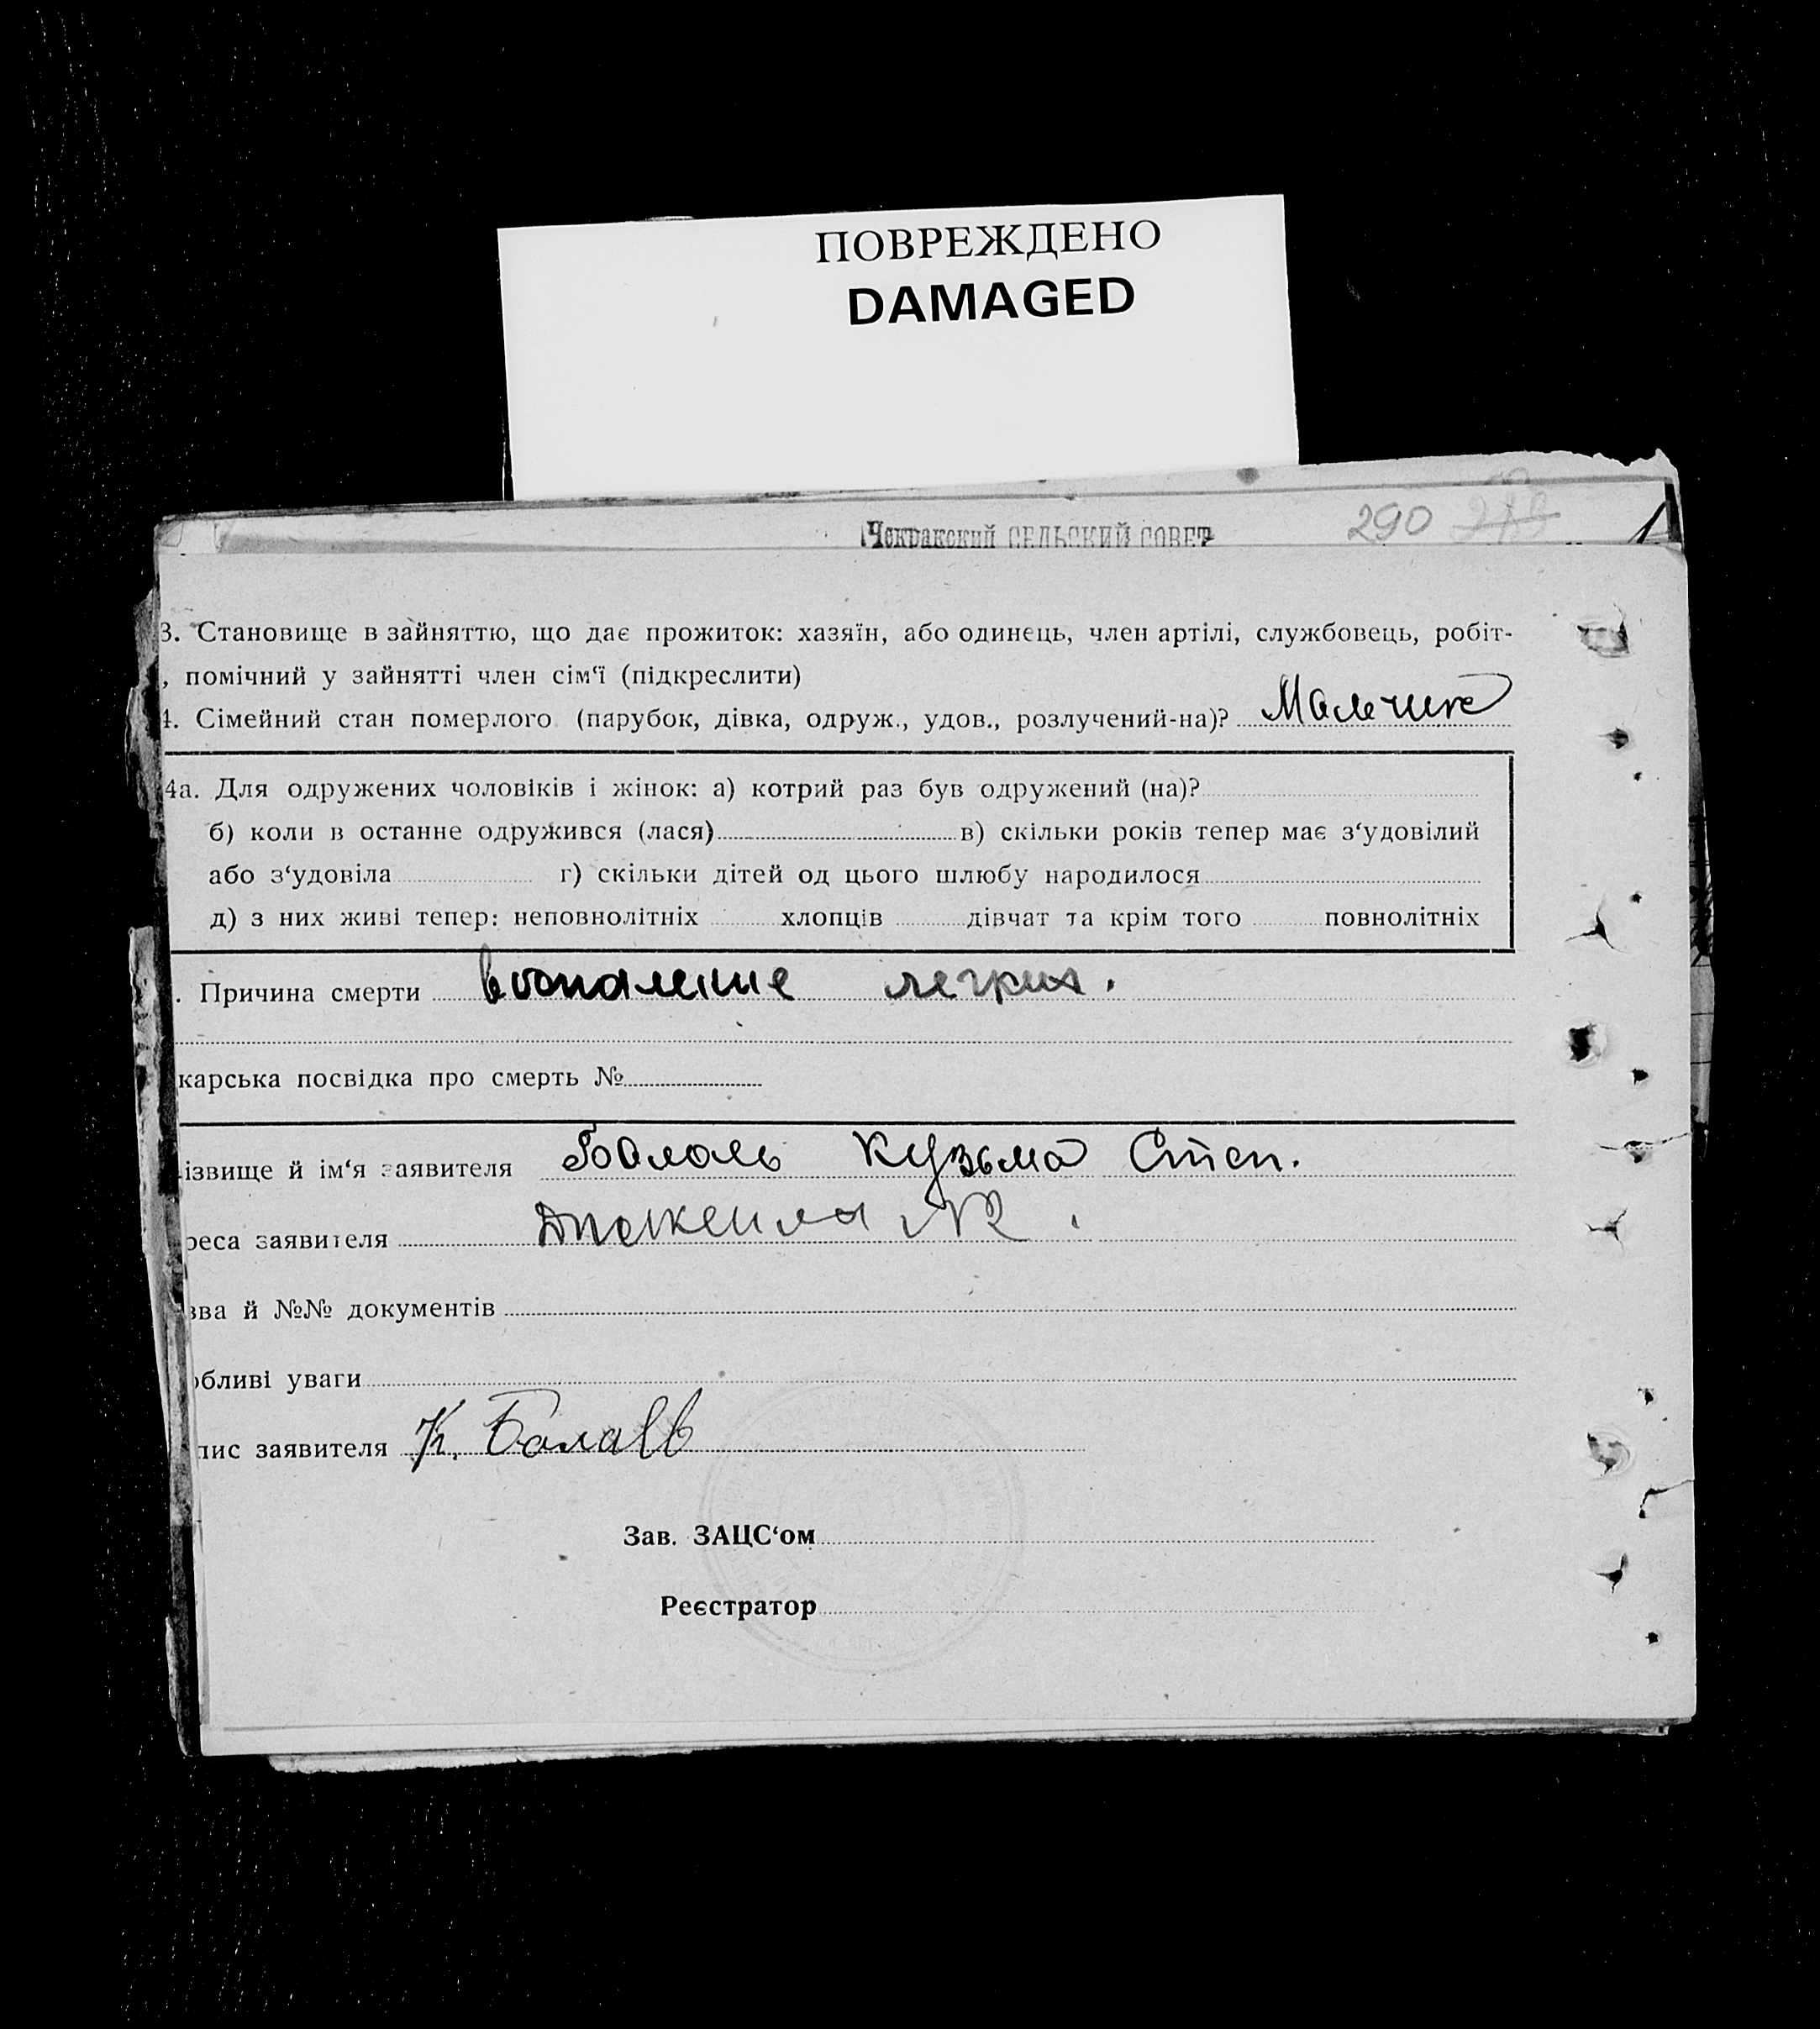 ПОВРЕЖДЕНО
DAMAGED
СЕЛЬСКИЙ СОВЕТ
290
3. Становище в зайняттю, що дає прожиток: хазяїн, або одинець, член артілі, службовець, робіт-
, помічний у зайнятті член сім‘ї (підкреслити)
4. Сімейний стан померлого (парубок, дівка, одруж., удов., розлучений-на)? Мальчик
4а. Для одружених чоловіків і жінок: а) котрий раз був одружений (на)?
б) коли в останне одружився (лася) в) скільки років тепер має з‘удовілий
або з‘удовіла г) скільки дітей од цього шлюбу народилося
д) з них живі тепер: неповнолітніх хлопців дівчат та крім того повнолітніх
. Причина смерти воспаление легких.
карська посвідка про смерть №
ізвище й ім‘я заявителя Кузьма Степ.
реса заявителя №2
зва й №№ документів
обливі уваги
пис заявителя К.
Зав. ЗАЦС‘ом
Реєстратор